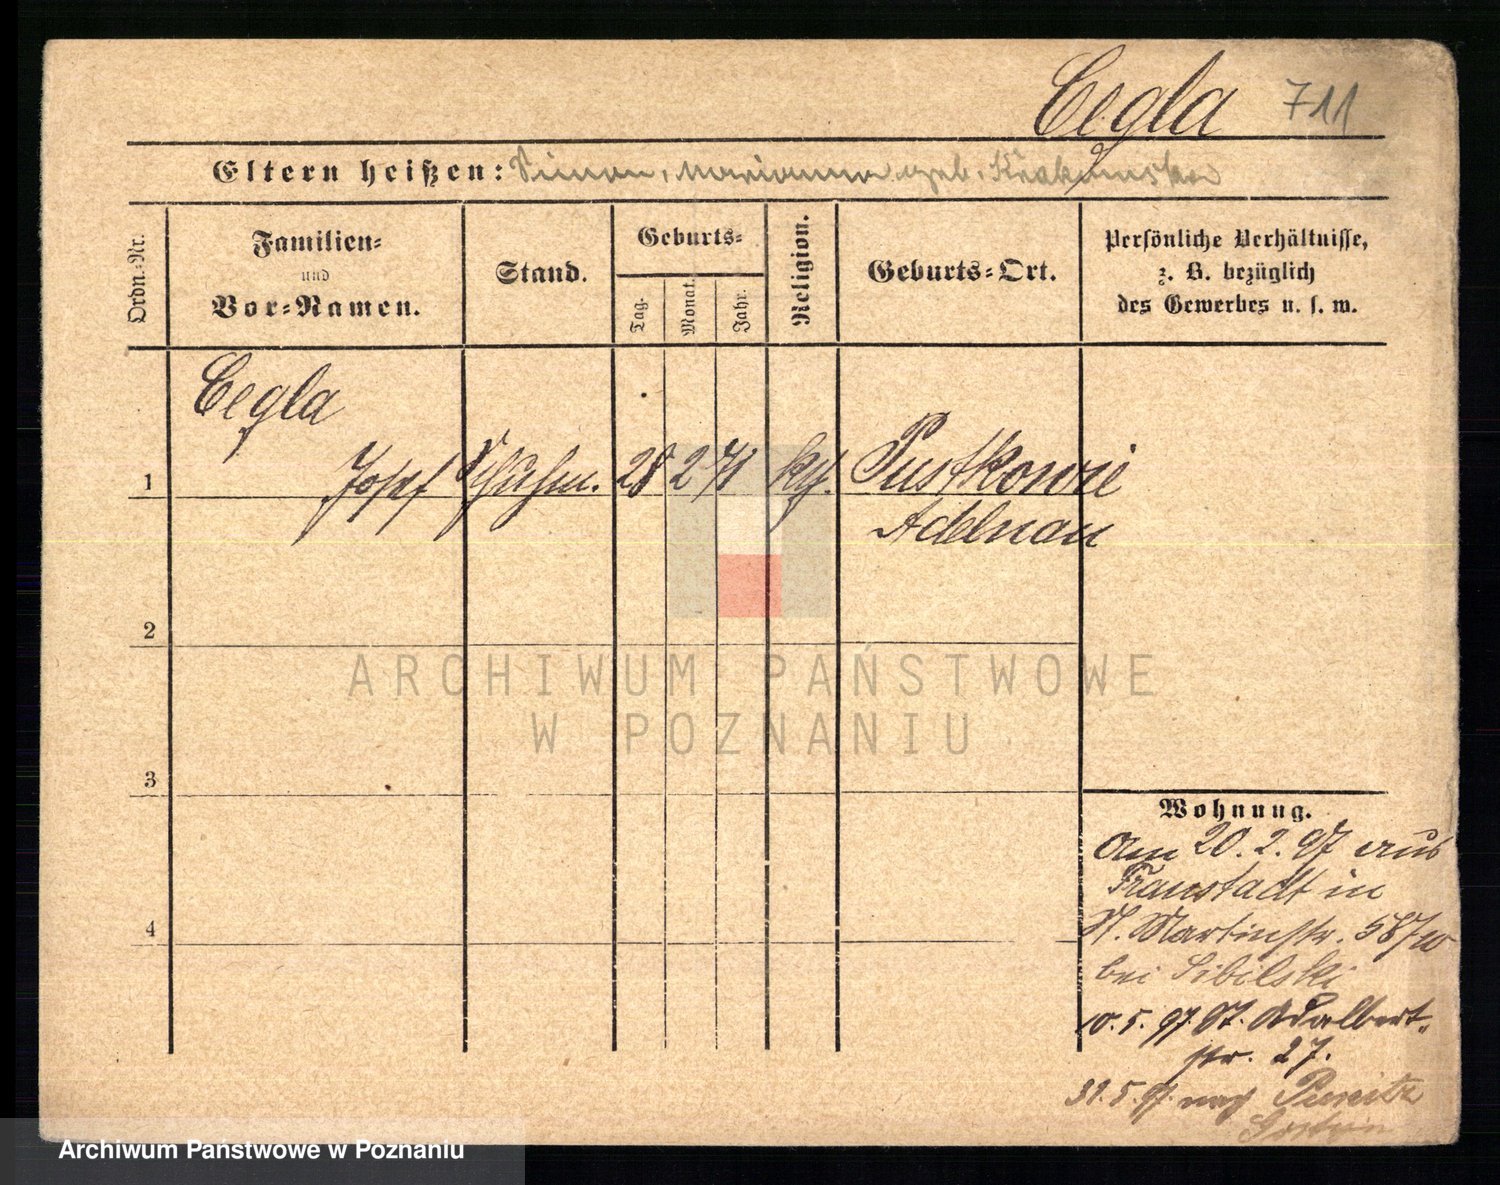 Cegla 711
Eltern heißen: Simon, Marianna geb.
Ordn.-Nr.
Familien-
und
Vor-Namen.
Stand.
Geburts-
Tag.
Monat.
Jahr.
Religion.
Geburts-Ort.
Persönliche Verhältnisse,
z. B. bezüglich
des Gewerbes u. s. w.
Cegla
1 Josef Schuhm. 28 2 71 kth. Pustkowie
Adelnau
2
3
4
ARCHIWUM PAŃSTWOWE
W POZNANIU
Wohnung.
Am 20. 2. 97 aus
Fraustadt in
St. Martinstr. 58/
bei Sibilski
10. 5. 97 St. Adalbert-
str. 27.
31. 5. 97 nach Punitz
Gostyn
Archiwum Państwowe w Poznaniu